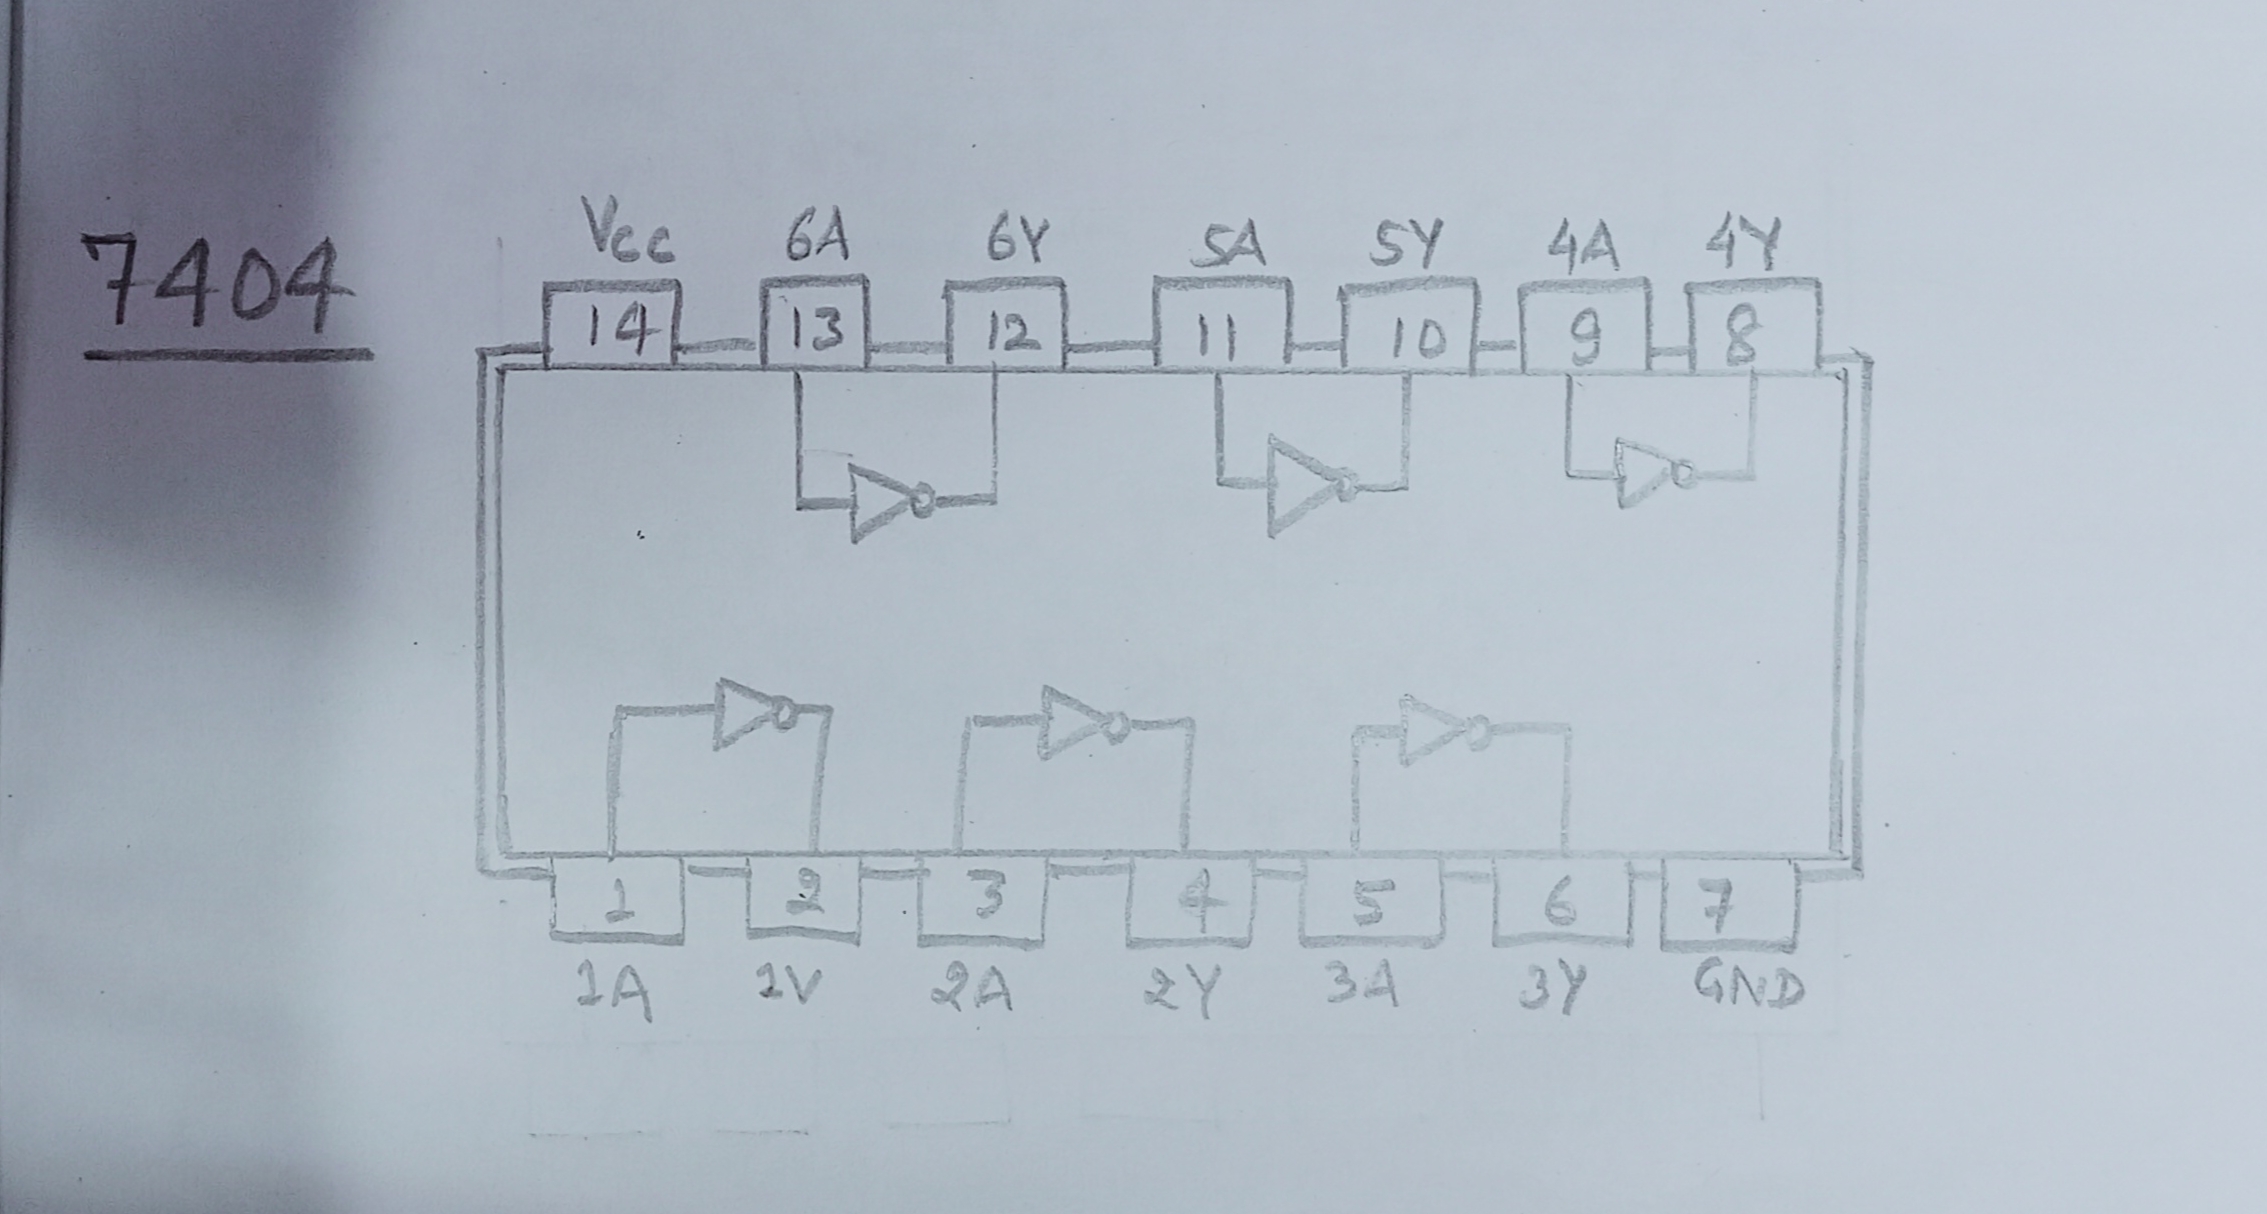 7404
Vcc 6A 6Y 5A 5Y 4A 4Y
14 13 12 11 10 9 8
1 2 3 4 5 6 7
1A 1V 2A 2Y 3A 3Y GND